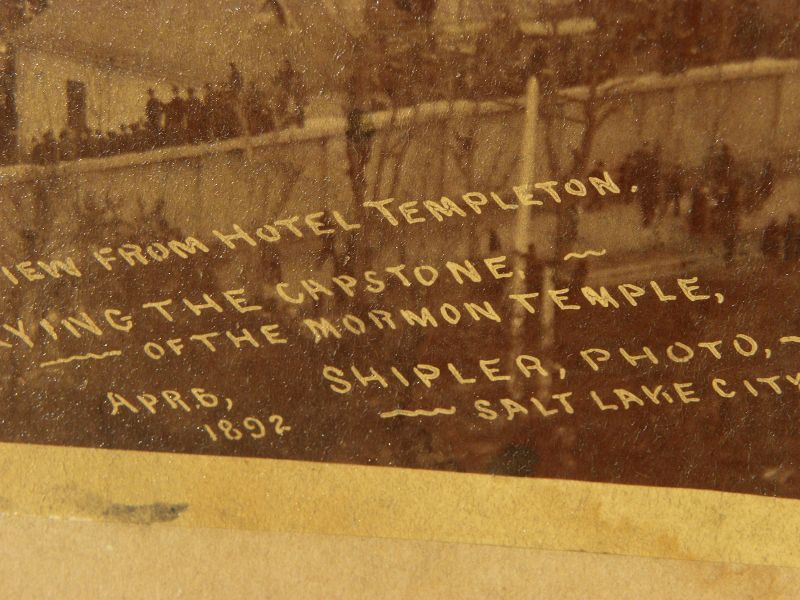 IEW FROM HOTEL TEMPLETON.
YING THE CAPSTONE,
OF THE MORMON TEMPLE,
APR.6,
1892
SHIPLER, PHOTO,
SALT LAKE CITY